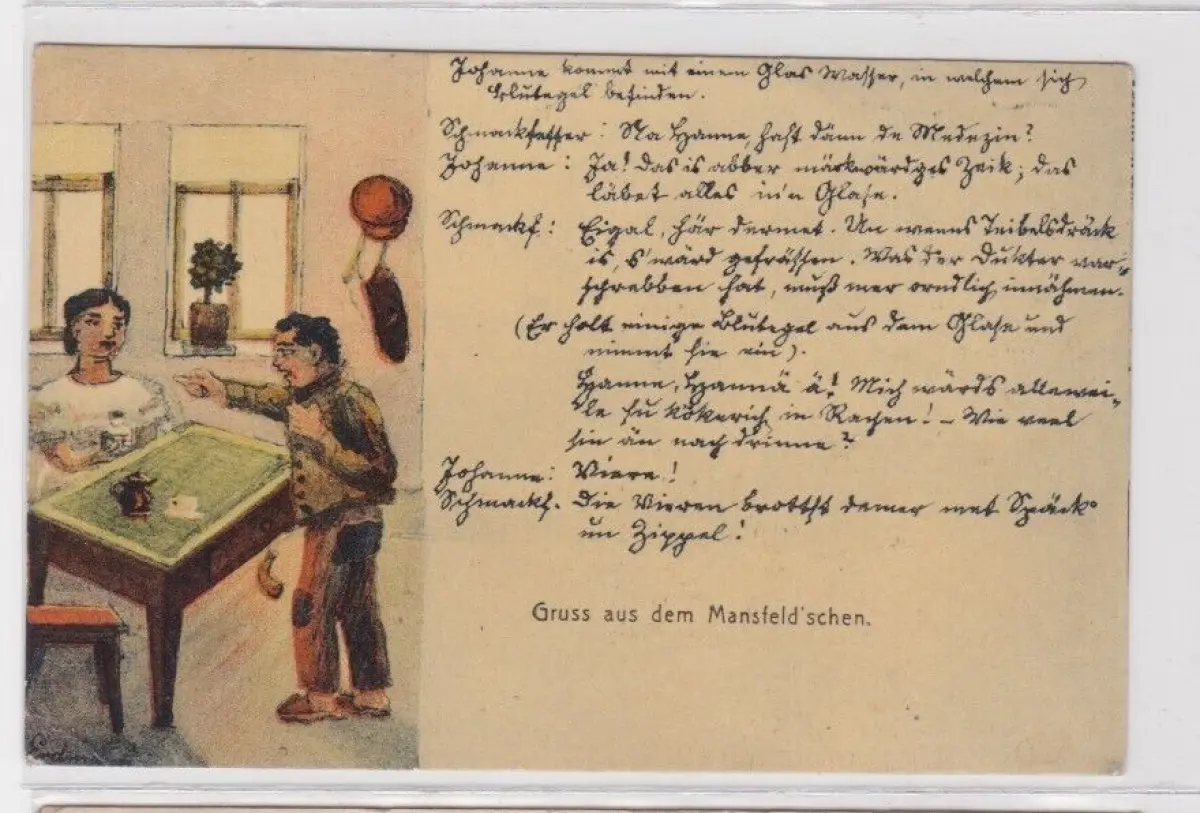 Johanne kommt mit einem Glas Wasser, in welchem sich
Blutegel befinden.
Schmackfesser: Na Hanne, hast dänn de Medezin?
Johanne: Ja! Das is abber märkwärdges Zeik; das
läbet alles in'n Glase.
Schmackf: Eigal, här dermet. Un wenns Teibelsdräck
is, s' wärd gefrässen. Was der Dukter var-
schrebben hat, muß mer orndlich innähmen.
(Er holt einige Blutegel aus dem Glase und
nimmt sie ein).
Hanne, Hannä ä! Mich wärds allewei-
le su kökerich in Rachen! - Wie veel
sin än nach drinne?
Johanne: Viere!
Schmackf. Die Vieren brottst demer met Späck
un Zippel!
Gruss aus dem Mansfeld'schen.